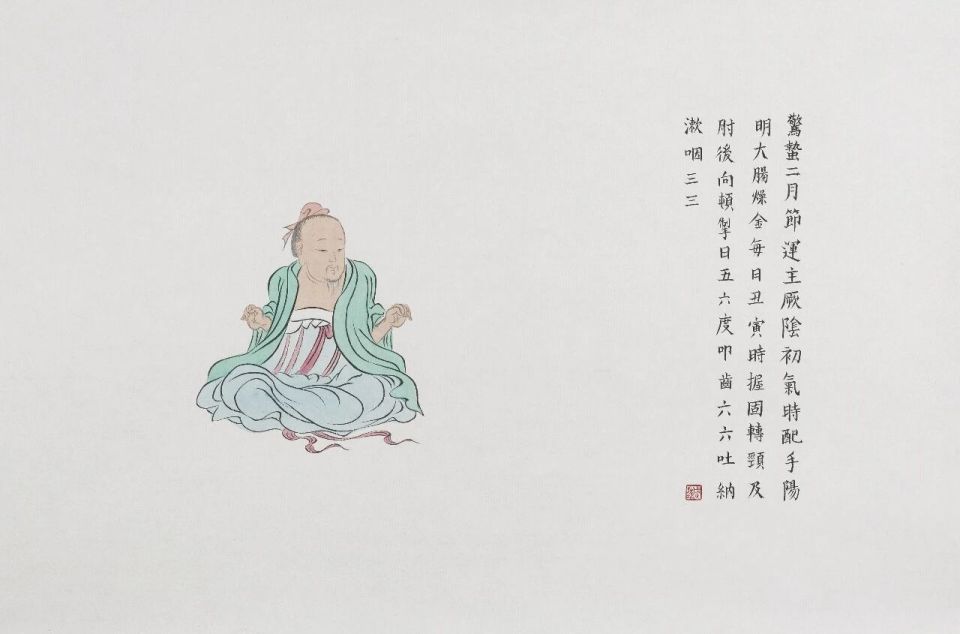 驚蟄二月節運主厥陰初氣時配手陽
明大腸燥金每日丑寅時握固轉頸及
肘後向頓掣日五六度叩齒六六吐納
漱咽三三